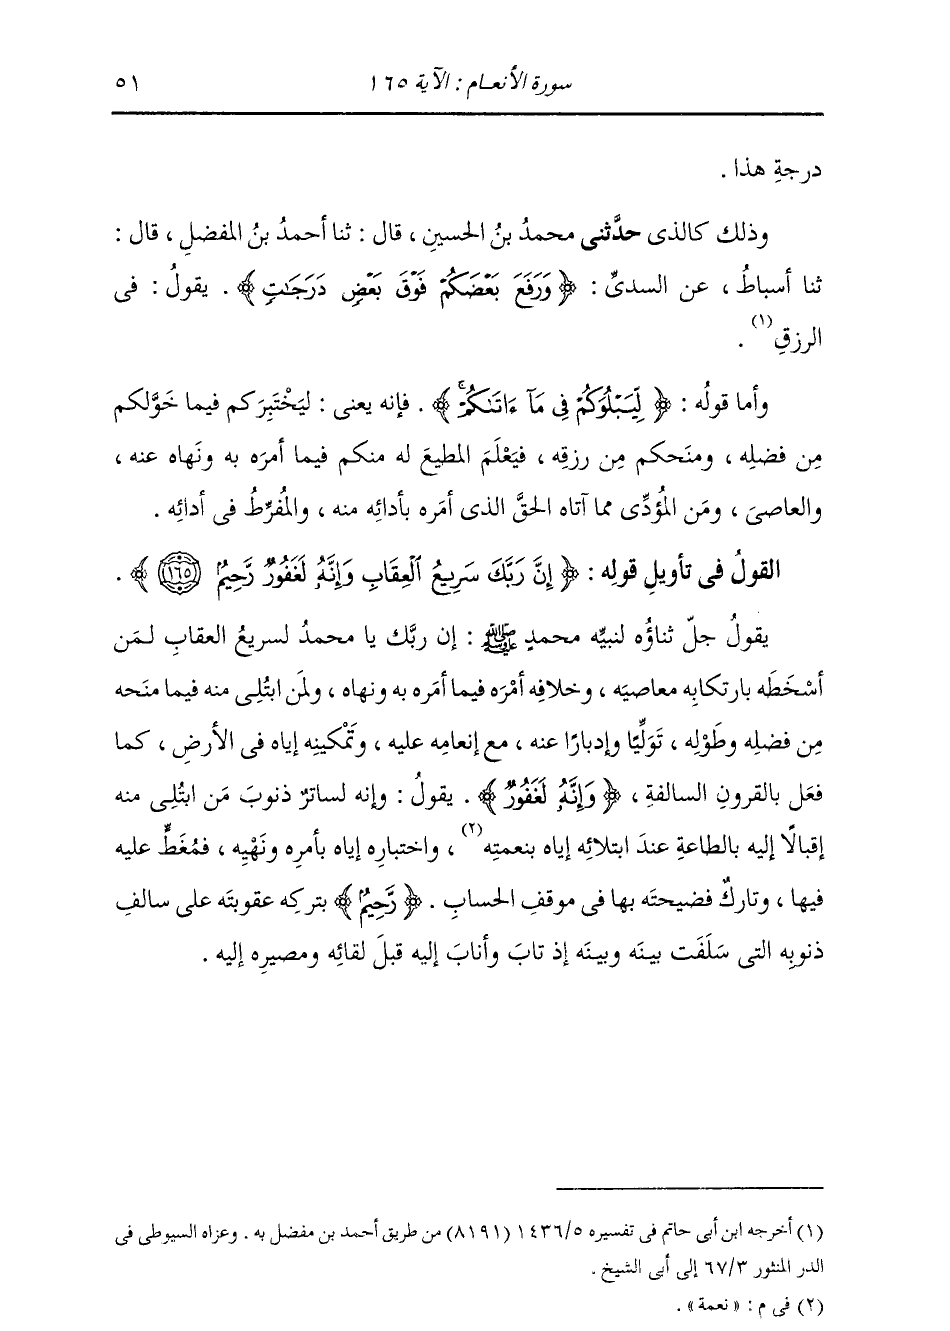 سورة الأنعام : الآية ١٦٥ ٥١
درجةِ هذا .
وذلك كالذى حدَّثنى محمدُ بنُ الحسينِ ، قال : ثنا أحمدُ بنُ المفضلِ ، قال :
ثنا أسباطُ ، عن السدىِّ : ﴿ وَرَفَعَ بَعْضَكُمْ فَوْقَ بَعْضٍ دَرَجَاتٍ ﴾ . يقولُ : فى
الرزقِ(١) .
وأما قولُه : ﴿ لِّيَبْلُوَكُمْ فِى مَآ ءَاتَىٰكُمْ ﴾ . فإنه يعنى : ليَخْتَبِرَكم فيما خَوَّلكم
مِن فضلِه ، ومنَحكم مِن رزقِه ، فيَعْلَمَ المطيعَ له منكم فيما أمرَه به ونَهاه عنه ،
والعاصىَ ، ومَن المُؤدِّى مما آتاه الحقَّ الذى أمَره بأدائِه منه ، والمُفرِّطُ فى أدائِه .
القولُ فى تأويلِ قولِه : ﴿ إِنَّ رَبَّكَ سَرِيعُ ٱلْعِقَابِ وَإِنَّهُۥ لَغَفُورٌ رَّحِيمٌ ١٦٥ ﴾ .
يقولُ جلّ ثناؤُه لنبيِّه محمدٍ ﷺ : إن ربَّك يا محمدُ لسريعُ العقابِ لـمَن
أسْخَطَه بارتكابِه معاصيَه ، وخلافِه أمْرَه فيما أمَره به ونهاه ، ولمَن ابتُلِى منه فيما منَحه
مِن فضلِه وطَوْلِه ، تَوَلِّيًا وإدبارًا عنه ، مع إنعامِه عليه ، وتَمْكينِه إياه فى الأرضِ ، كما
فعَل بالقرونِ السالفةِ ، ﴿ وَإِنَّهُۥ لَغَفُورٌ ﴾ . يقولُ : وإنه لساترٌ ذنوبَ مَن ابتُلِى منه
إقبالًا إليه بالطاعةِ عندَ ابتلائِه إياه بنعمتِه(٢) ، واختبارِه إياه بأمرِه ونَهْيِه ، فمُغَطٍّ عليه
فيها ، وتاركٌ فضيحتَه بها فى موقفِ الحسابِ . ﴿ رَّحِيمٌ ﴾ بتركِه عقوبتَه على سالفِ
ذنوبِه التى سَلَفَت بينَه وبينَه إذ تابَ وأنابَ إليه قبلَ لقائِه ومصيرِه إليه .
(١) أخرجه ابن أبى حاتم فى تفسيره ١٤٣٦/٥ (٨١٩١) من طريق أحمد بن مفضل به . وعزاه السيوطى فى
الدر المنثور ٦٧/٣ إلى أبى الشيخ .
(٢) فى م : « نعمة » .